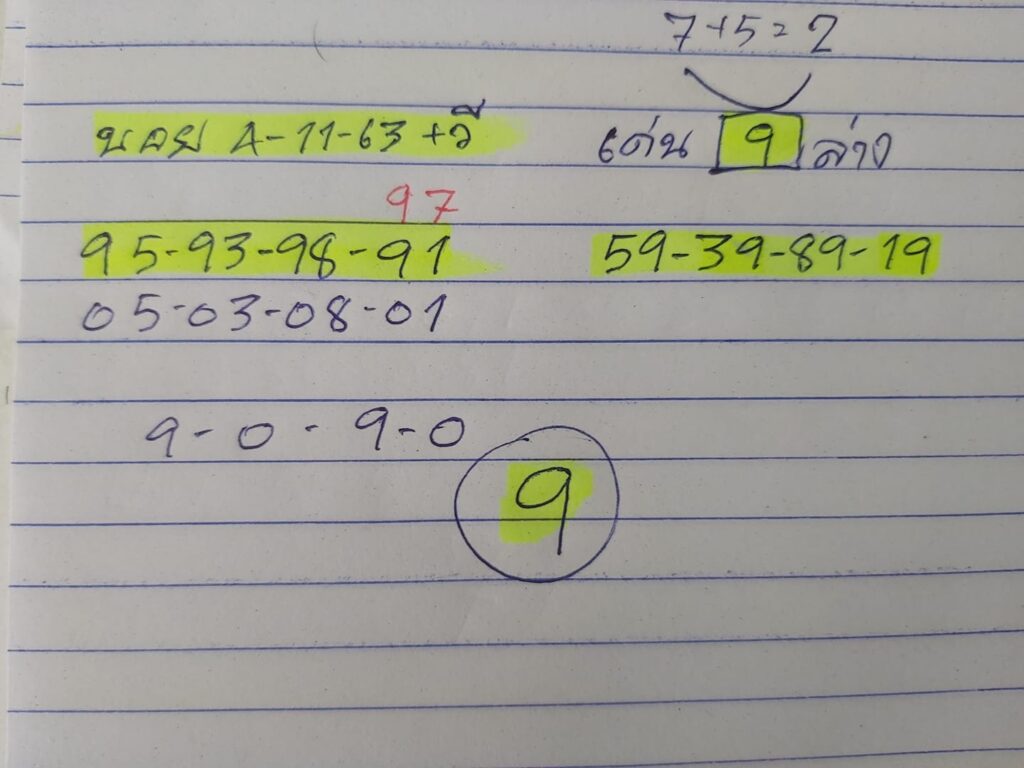 7+5=2
ฮอย 4-11-63 +วี
เด่น 9 ล่าง
97
95-93-98-91
59-39-89-19
05-03-08-01
9-0-9-0
9